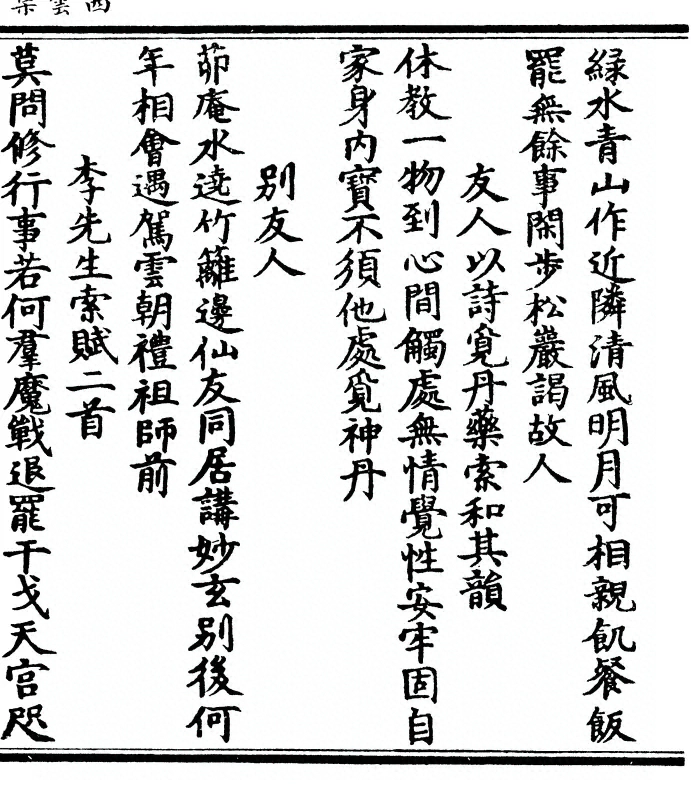 綠水青山作近隣清風明月可相親飢餐飯
罷無餘事閑步松巖謁故人
友人以詩覓丹藥索和其韻
休教一物到心間觸處無情覺性安牢固自
家身內寶不須他處覓神丹
别友人
茆庵水遶竹籬邊仙友同居講妙玄别後何
年相會遇駕雲朝禮祖師前
李先生索賦二首
莫問修行事若何羣魔戰退罷干戈天宮咫